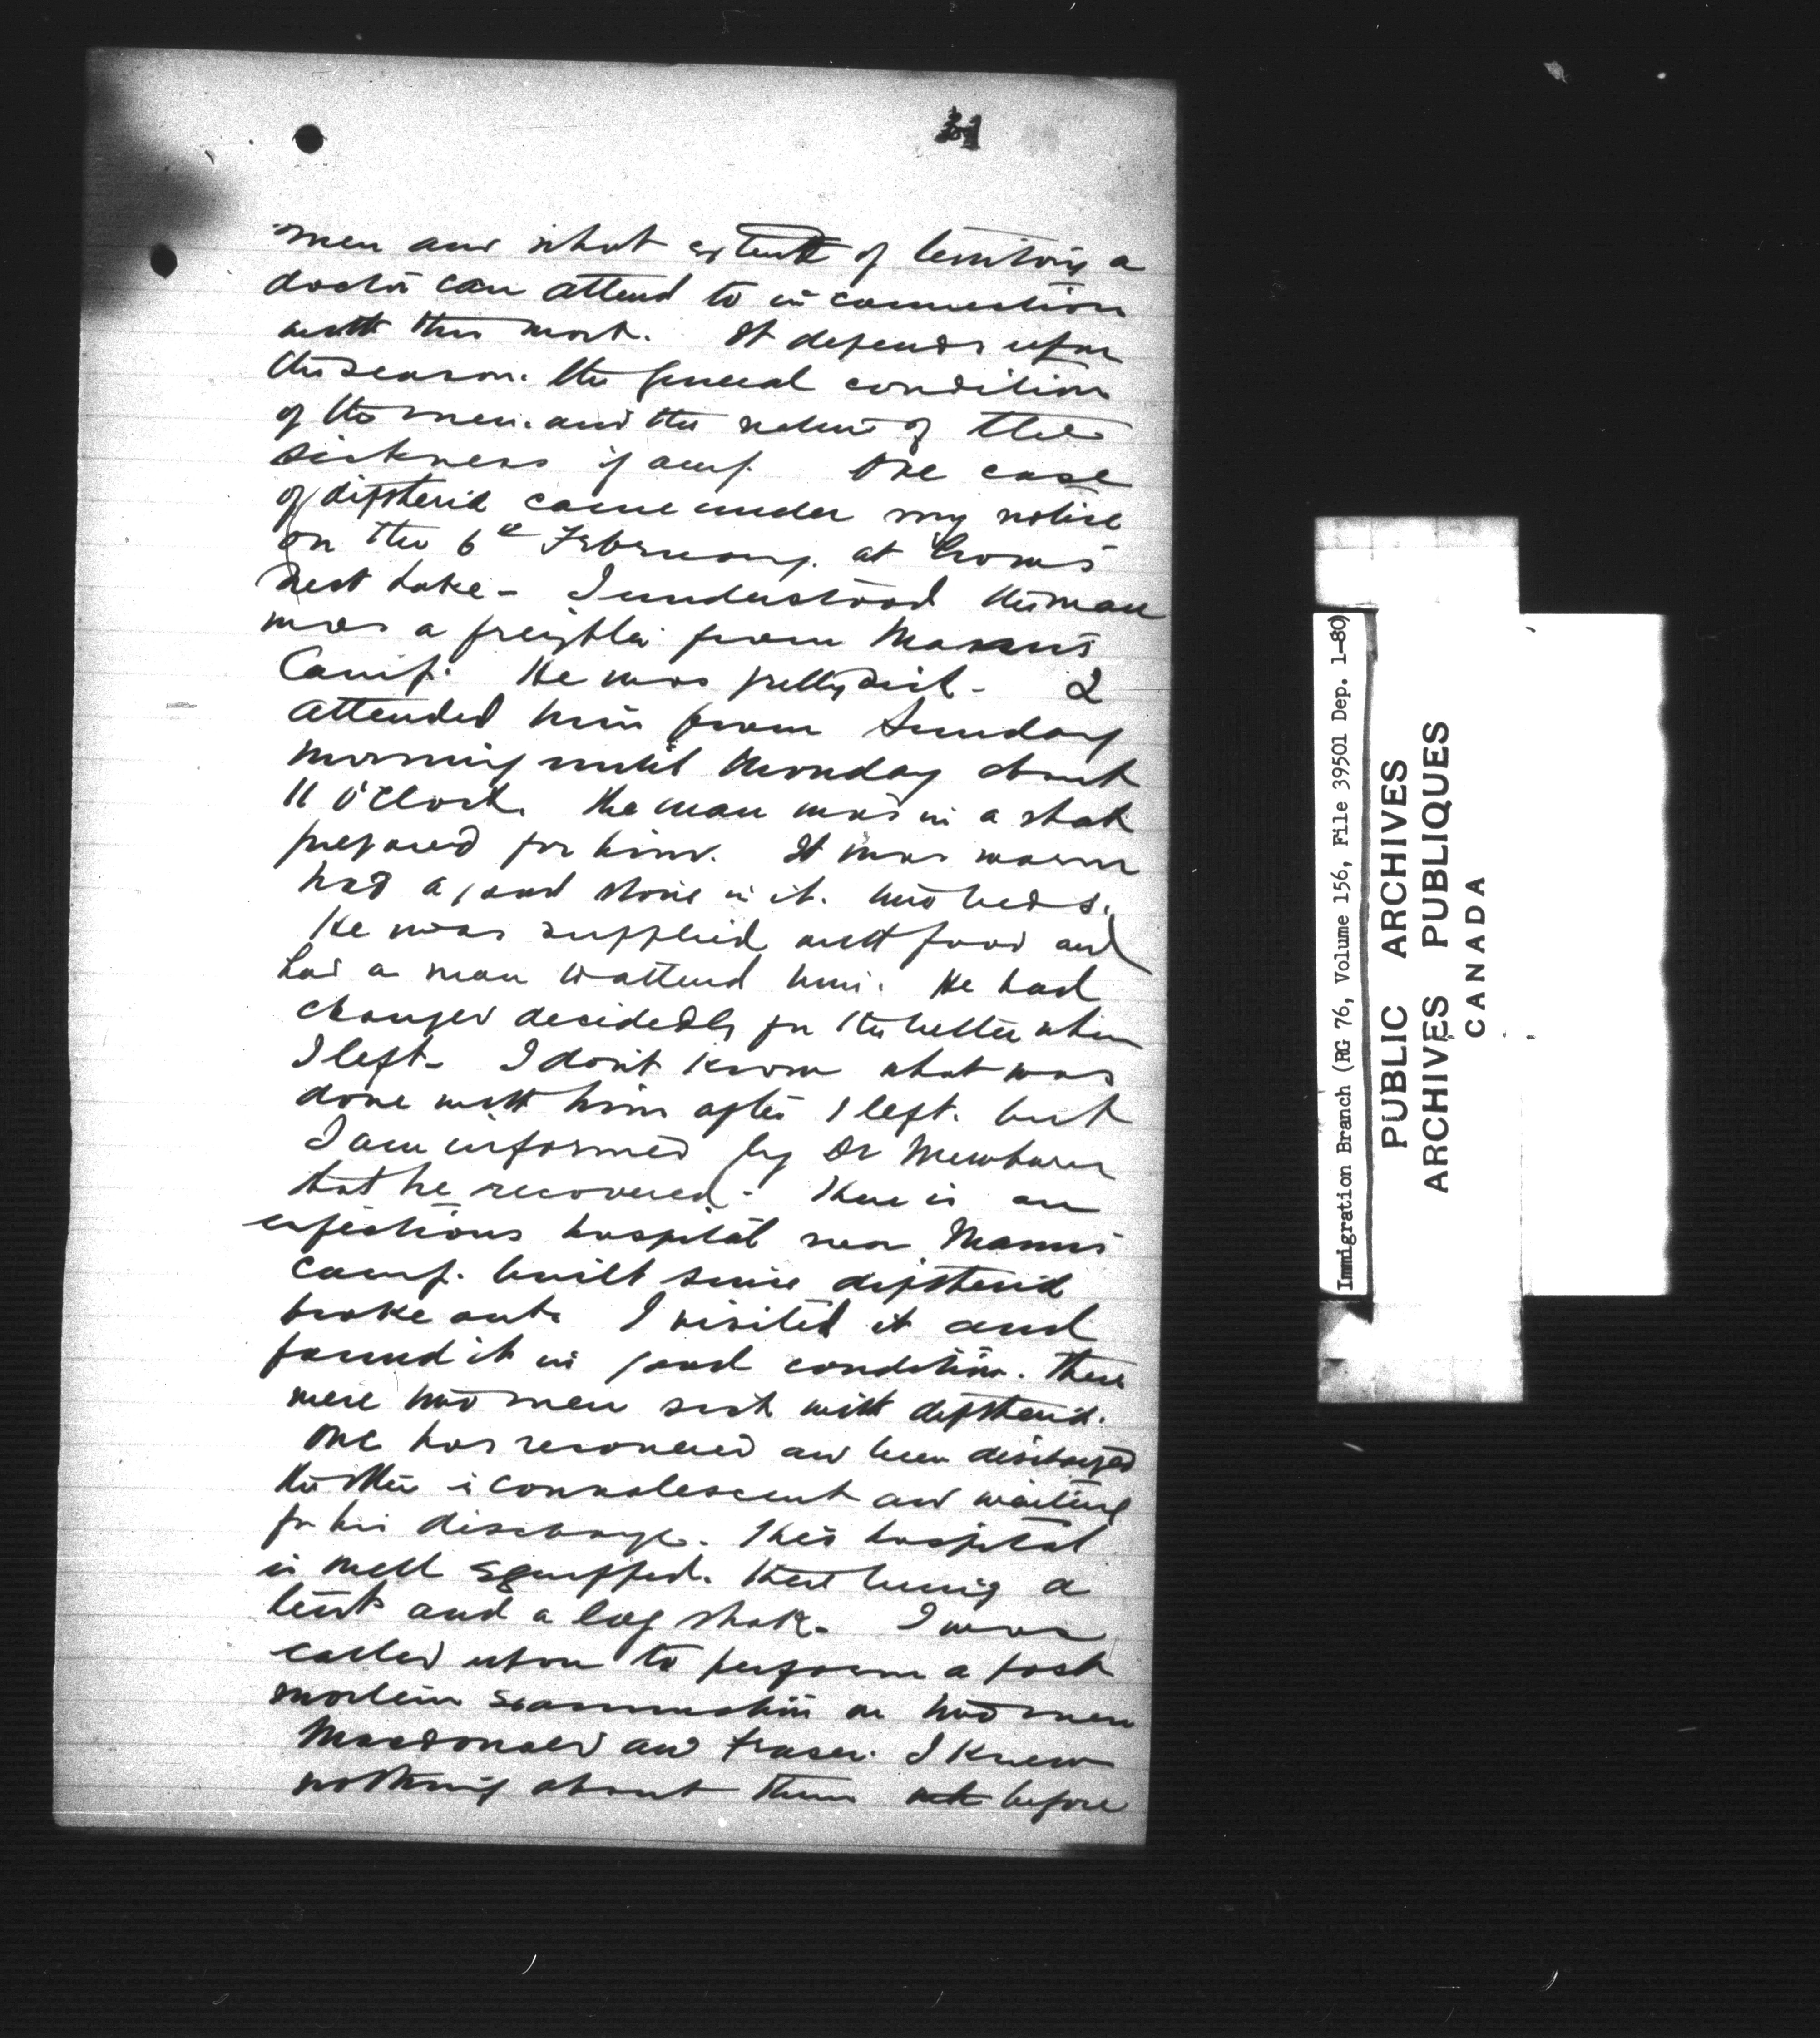 men and what extent of territory a
doctor can attend to in connection
with this work. It depends upon
the season. the general condition
of the men. and the nature of the
sickness if any. One case
of diptheria came under my notice
on the 6th February. at Crow's
Nest Lake - I understood the man
was a freighter from Mann's
Camp. He was pretty sick - I
attended him from Sunday
morning until Monday about
11 O'Clock. The man was in a shak
prepared for him. It was warm
had a good stove in it. two beds.
He was supplied with food and
had a man to attend him. He had
changed decidedly for the better when
I left - I don't know what was
done with him after I left. but
I am informed by Dr Mewburn
that he recovered - There is an
infectious hospital near Mann's
camp. built since diptheria
broke out. I visited it and
found it in good condition. There
were two men sick with diptheria.
One has recovered and been discharged
the other is convalescent and waiting
for his discharge. This hospital
is well equipped. there being a
tent and a log shak. I was
called upon to perform a post
mortem examination on two men
Macdonald and Fraser. I knew
nothing about them before
Immigration Branch (RG 76, Volume 156, File 39501 Dep. 1-80)
PUBLIC ARCHIVES
ARCHIVES PUBLIQUES
CANADA